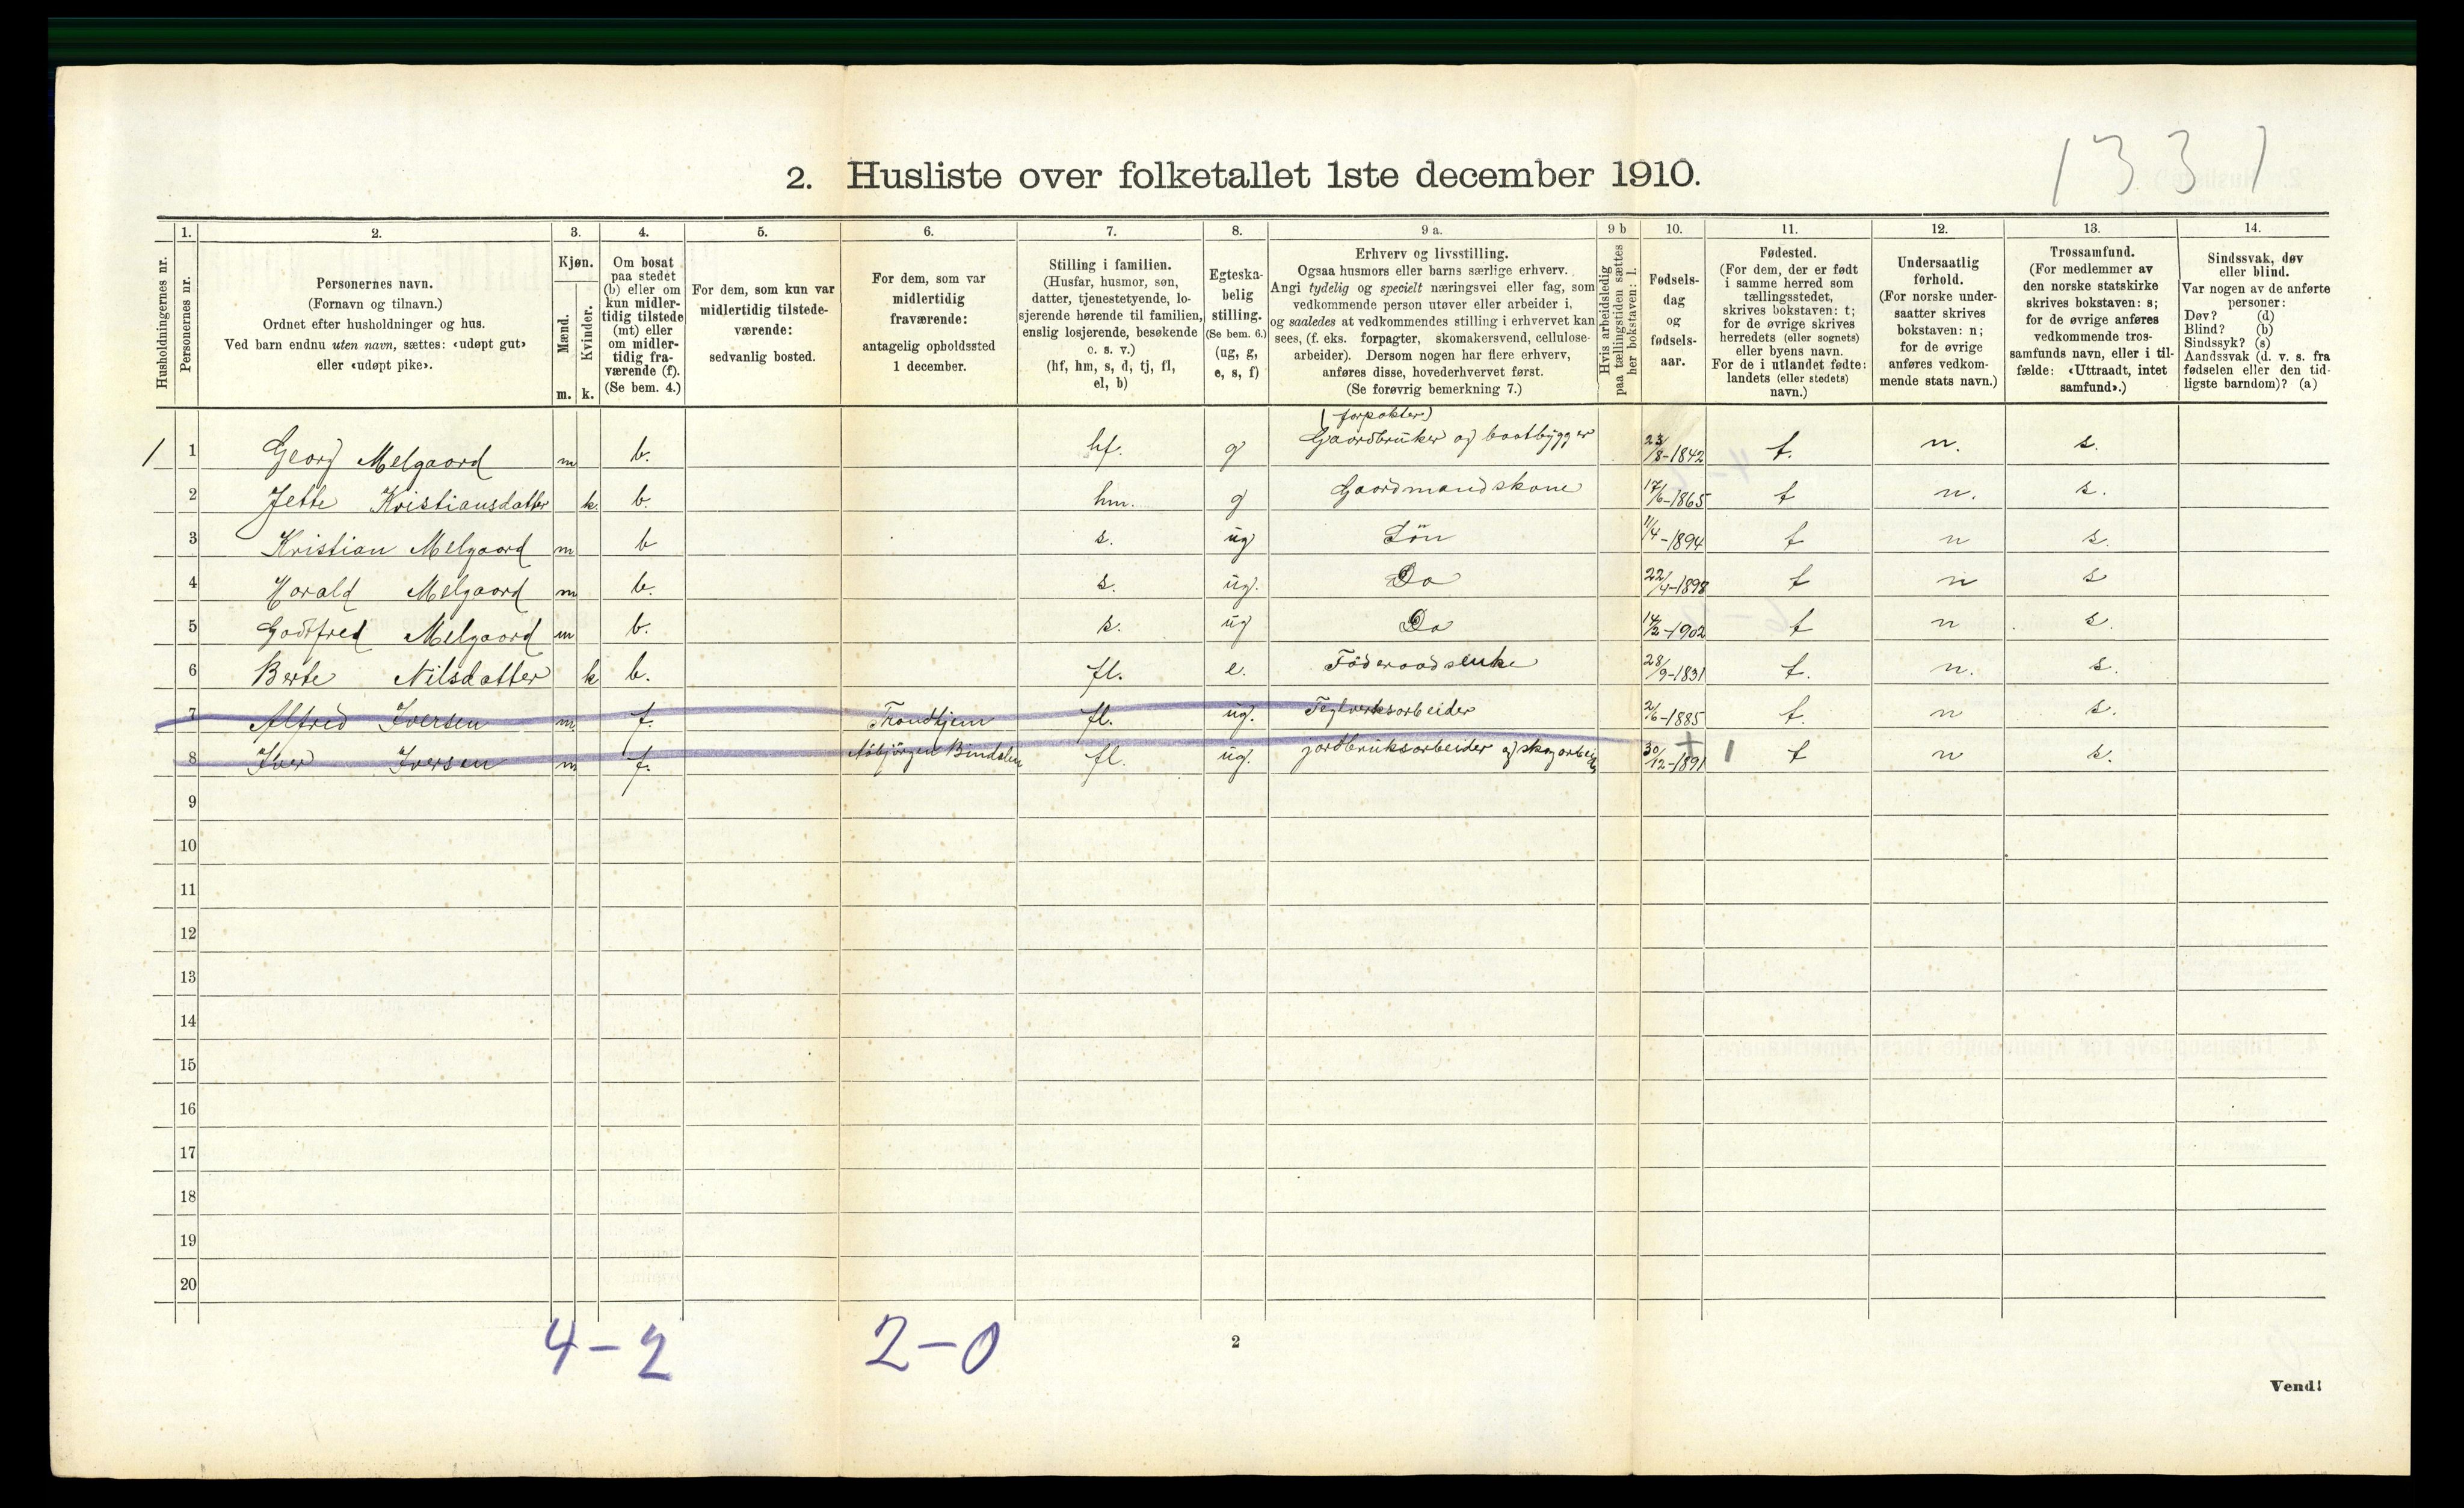 1331
2. Husliste over folketallet 1ste december 1910.
Husholdningernes nr.
1.
Personernes nr.
2.
Personernes navn.
(Fornavn og tilnavn.)
Ordnet efter husholdninger og hus.
Ved barn endnu uten navn, sættes: «udøpt gut»
eller «udøpt pike».
3.
Kjøn.
Mænd.
Kvinder.
m. k.
4.
Om bosat
paa stedet
(b) eller om
kun midler-
tidig tilstede
(mt) eller
om midler-
tidig fra-
værende (f).
(Se bem. 4.)
5.
For dem, som kun var
midlertidig tilstede-
værende:
sedvanlig bosted.
6.
For dem, som var
midlertidig
fraværende:
antagelig opholdssted
1 december.
7.
Stilling i familien.
(Husfar, husmor, søn,
datter, tjenestetyende, lo-
sjerende hørende til familien,
enslig losjerende, besøkende
o. s. v.)
(hf, hm, s, d, tj, fl,
el, b)
8.
Egteska-
belig
stilling.
(Se bem. 6.)
(ug, g,
e, s, f)
9 a.
Erhverv og livsstilling.
Ogsaa husmors eller barns særlige erhverv.
Angi tydelig og specielt næringsvei eller fag, som
vedkommende person utøver eller arbeider i,
og saaledes at vedkommendes stilling i erhvervet kan
sees, (f. eks. forpagter, skomakersvend, cellulose-
arbeider). Dersom nogen har flere erhverv,
anføres disse, hovederhvervet først.
(Se forøvrig bemerkning 7.)
9 b
Hvis arbeidsledig
paa tællingstiden sættes
her bokstaven: l.
10.
Fødsels-
dag
og
fødsels-
aar.
11.
Fødested.
(For dem, der er født
i samme herred som
tællingsstedet,
skrives bokstaven: t;
for de øvrige skrives
herredets (eller sognets)
eller byens navn.
For de i utlandet fødte:
landets (eller stedets)
navn.)
12.
Undersaatlig
forhold.
(For norske under-
saatter skrives
bokstaven: n;
for de øvrige
anføres vedkom-
mende stats navn.)
13.
Trossamfund.
(For medlemmer av
den norske statskirke
skrives bokstaven: s;
for de øvrige anføres
vedkommende tros-
samfunds navn, eller i til-
fælde: «Uttraadt, intet
samfund».)
14.
Sindssvak, døv
eller blind.
Var nogen av de anførte
personer:
Døv? (d)
Blind? (b)
Sindssyk? (s)
Aandssvak (d. v. s. fra
fødselen eller den tid-
ligste barndom)? (a)
(forpakter)
1 1 Georg Melgaard m b. hf. g Gaardbruker og baatbygger 23/8-1842 t. n. s.
2 Jette Kristiansdatter k. b. hm. g Gaardmandskone 17/6-1865 t n. s.
3 Kristian Melgaard m b s. ug Sön 11/4-1894 t n s.
4 Harald Melgaard m b. s. ug. Do 22/4-1898 t n s
5 Godtfred Melgaard m b. s. ug Do 14/2-1902 t n s.
6 Berte Nilsdatter k b. fl. e. Föderaadsenke 28/9-1831 t. n. s.
7 Alfred Iversen m. f. Trondhjem fl. ug. Teglverksarbeider 2/6-1885 t. n s.
8 Iver Iversen m f. Aabjörgen Bindalen fl. ug. jordbruksarbeider og skogarbeider 30/12-1891 t n s.
9
10
11
12
13
14
15
16
17
18
19
20
4-2 2-0
2
Vend!